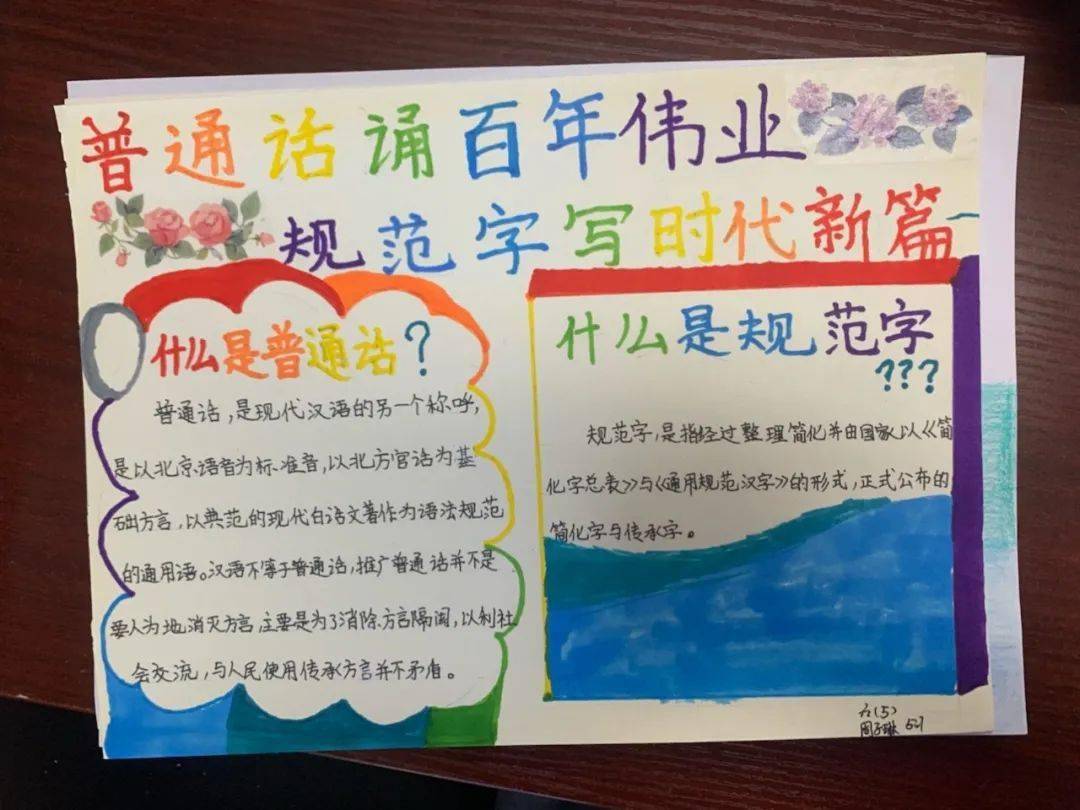 普通话诵百年伟业
规范字写时代新篇
什么是普通话?
普通话,是现代汉语的另一个称呼,
是以北京语音为标准音,以北方官话为基
础方言,以典范的现代白话文著作为语法规范
的通用语。汉语不等于普通话,推广普通话并不是
要人为地消灭方言主要是为了消除方言隔阂,以利社
会交流,与人民使用传承方言并不矛盾。
什么是规范字
???
规范字,是指经过整理简化并由国家以《简
化字总表》与《通用规范汉字》的形式,正式公布的
简化字与传承字。
六(5)
周子琳